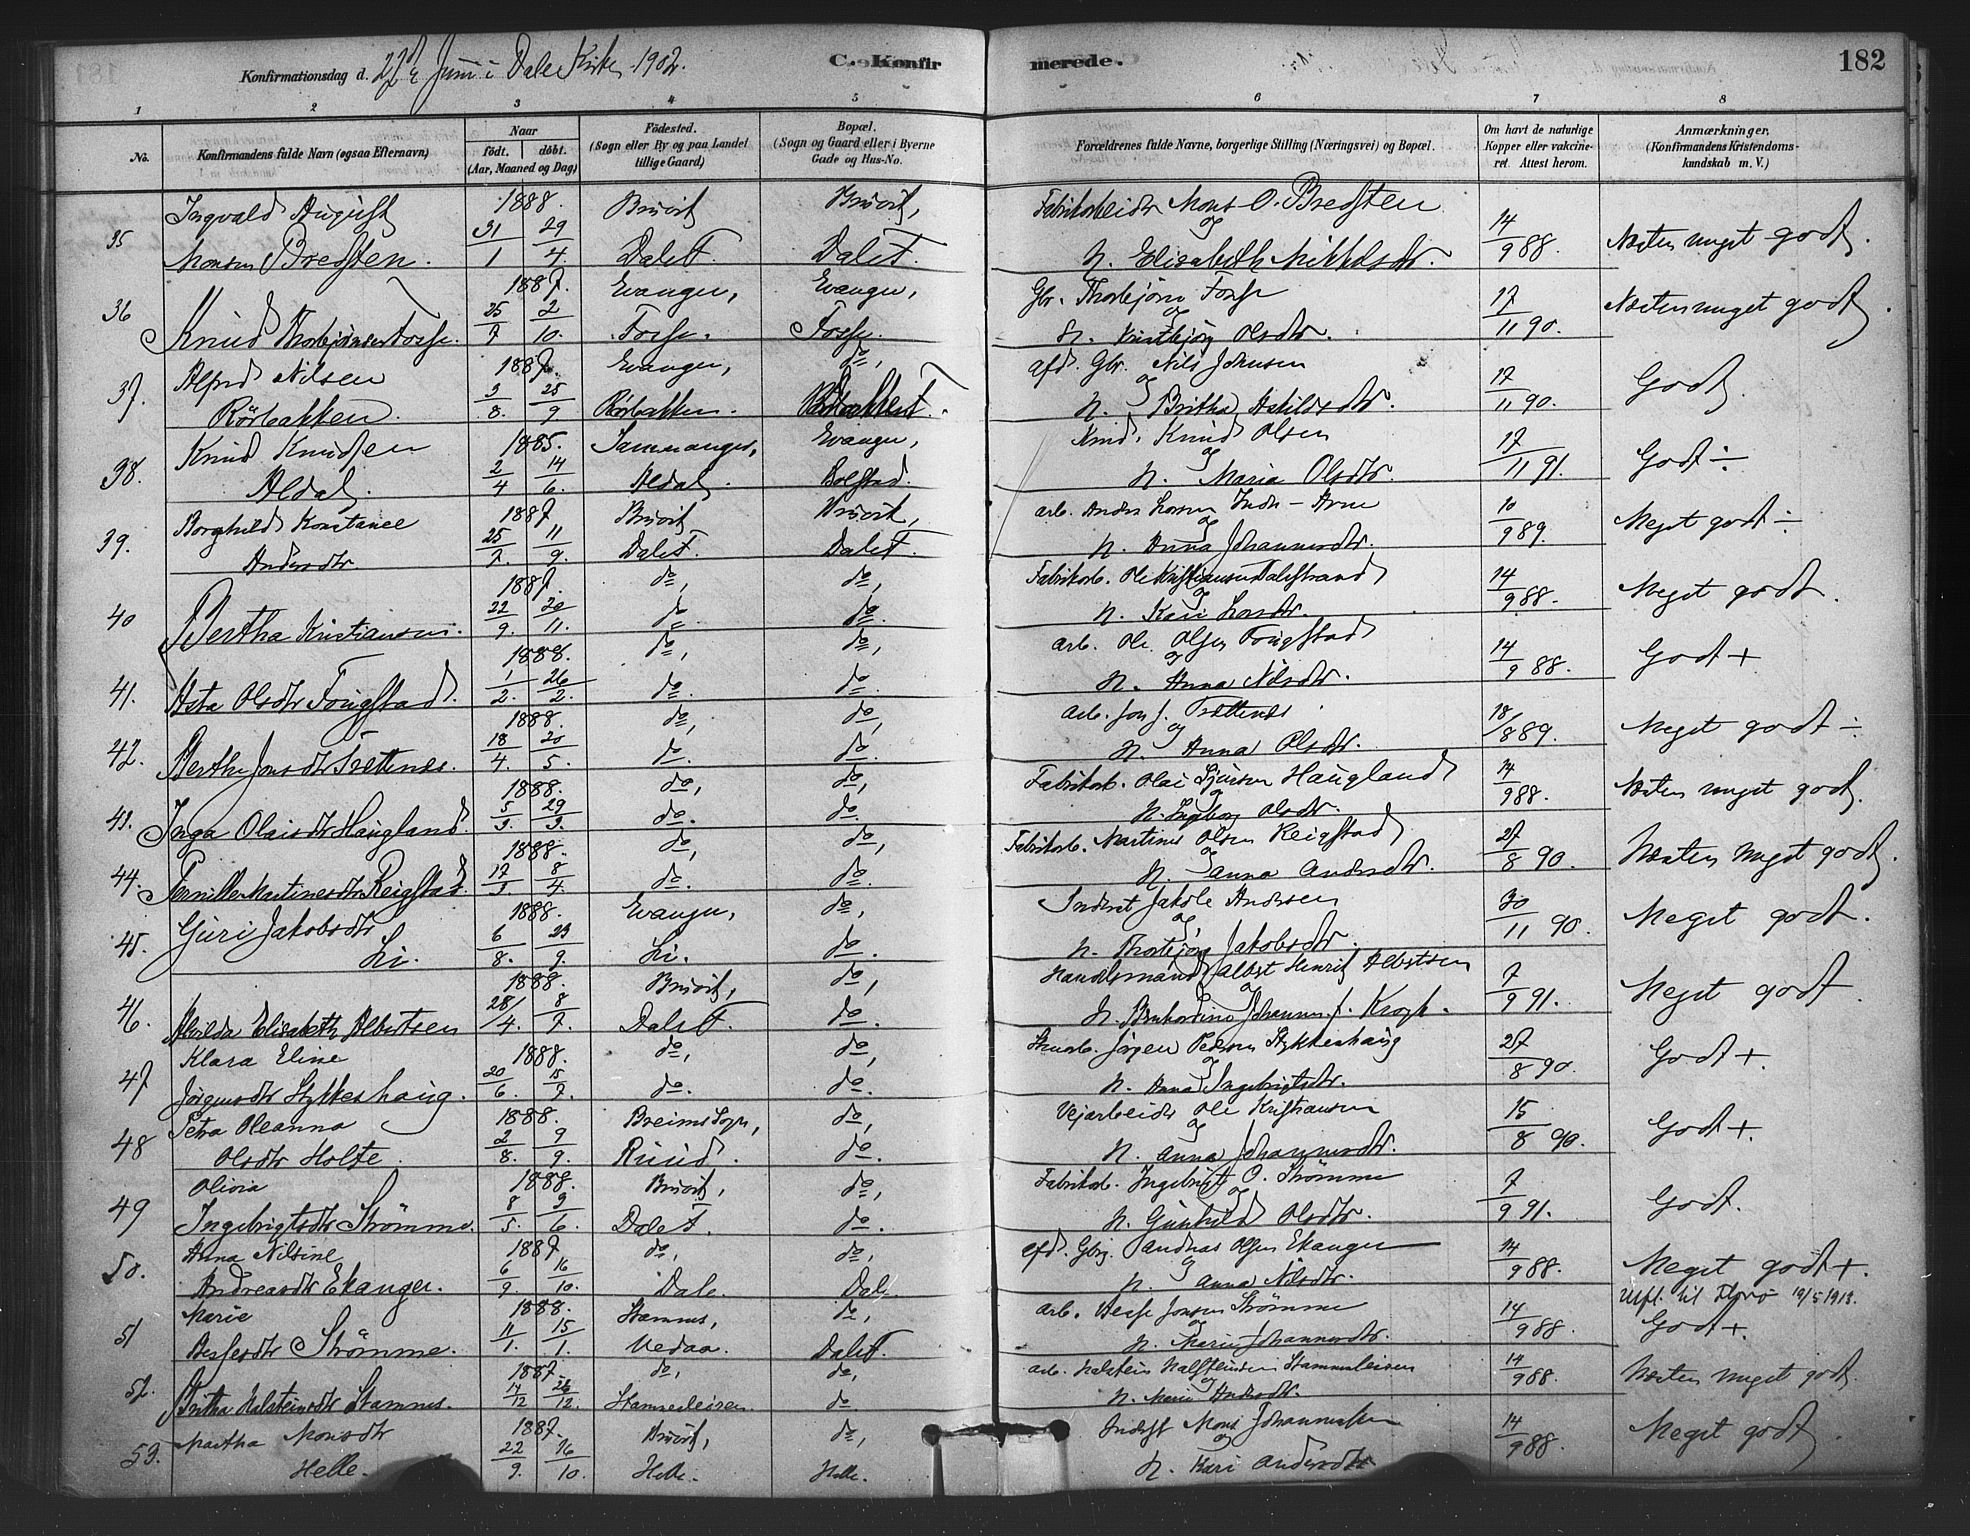 182
Konfirmationsdag d. 22de Juni i Dale Kirke 1902.
C. Konfirmerede.
1 2 3 4 5 6 7 8
No. Konfirmandens fulde Navn (ogsaa Efternavn) Naar födt. döbt. (Aar, Maaned og Dag) Födested. (Sogn eller By og paa Landet tillige Gaard) Bopæl. (Sogn og Gaard eller i Byerne Gade og Hus-No. Forældrenes fulde Navne, borgerlige Stilling (Næringsvei) og Bopæl. Om havt de naturlige Kopper eller vakcineret. Attest herom. Anmærkninger, (Konfirmandens Kristendomskundskab m. V.)
Ingvald August 1888. Bruvik, Bruvik, Fabrikarbeider Mons O. Bredsten og
35 Monsen Bredsten. 31/1 29/4 Dale F. Dale F. H. Elisabeth Mikkelsdtr. 14/9 88. Næsten meget godt.
1887. Evanger, Evanger, Gbr. Thorbjörn Fosse og
36 Knud Thorbjörnsen Fosse. 25/7 2/10. Fosse. Fosse. H. Kristbjörg Olsdtr. 17/11 90. Næsten meget godt.
Alfred Nilsen 1887. Evanger, do, afd. Gbr. Nils Johnsen og
37. Rörbakken. 3/8. 25/9 Rörbakken. H. Britha 17/11 90. Godt.
Knud Knudsen 1885. Samnanger, Evanger, Knud Olsen og
38. Aldal. 2/4 14/6. Aldal. Bolstad. H. Maria Olsdtr. 17/11 91. Godt ÷
Borghild Konstance 1887 Bruvik Bruvik, arb. Anders Larsen Indre-Arne og
39. Andersdtr. 25/7. 11/9. Dale F. Dale F. H. Anna Johannesdtr. 10/9 89. Meget godt ÷
1887. do, do, Fabrikarb. Ole Kristiansen Dalestrand og
40 Bertha Kristiansen. 22/9. 20/11. do do. H. Kari Larsdtr. 14/9 88. Meget godt.
1888. do, do, arb. Ole Olsen Fougstad og
41. Asta Olsdtr Fougstad. 1/2. 26/2. do. do. H. Anna Nilsdtr. 14/9 88. Godt +
1888. do, do, arb. Jon J. Trettenes og
42. Berthe Jonsdtr Trettenes. 18/4. 20/5. do. do. H. Anna Olsdtr. 18/8 89. Meget godt ÷
1888. do, do, Fabrikarb. Olai Sjursen Haugland og
43. Inga Olaisdtr Haugland. 5/3. 29/3. do. do. H. Ingeborg Olsdtr. 14/9 88. Næsten meget godt.
1888. do, do, Fabrikarb. Martines Olsen Reigstad og
44. Pernille Martinesdtr Reigstad. 17/3 8/4. do. do. H. Anna Andersdtr. 27/8 90. Næsten meget godt.
Guri Jakobsdtr 1888. Evanger, do, Inderst Jakob Andersen og
45. Li. 6/8. 23/9. Li. do. H. Thorbjörg Jakobsdtr. 20/11 90. Meget godt.
1888. Bruvik, do, Handelsmand Albert Henrik Albertsen og
46. Alvilda Elisabeth Albertsen 28/4. 8/7. Dale F. do. H. Johannes f. Krogh. 7/9 91. Meget godt.
Klara Eline 1888. do, do, Jörgen Peders. Stykkeshaug og
47 Jörgensdtr Stykkeshaug. 20/6. 15/7. do. do. H. Anna Ingebrigtsdtr. 27/8 90. Godt +
Petra Oleanna 1888. Breims Sogn, do, Vejarbeider Ole Kristiansen og
48 Olsdtr Holte. 2/8. 9/9. Ruud. do. H. Anna Johannesdtr. 15/8 90. Godt +.
Olivia 1888. Bruvik, do, Fabrikarb. Ingebrigt O. Strömme og
49 Ingebrigtsdtr Strömme. 8/5. 9/6. Dale F. do. H. Gunhild Olsdtr. 7/9 91. Godt.
Anna Nilsine 1887 do, do, afd. Gbrg. Andreas Olsen Ekanger og
50. Andreasdtr Ekanger. 6/9. 16/10. Dale. Dale H. Anna Nilsdtr. 14/9 88. Meget godt +.
Utfl. til Florö 19/5 1913.
Marie 1888. Stamnes, do, arb. Besse Jonsen Strömme og
51 Bessesdtr Strömme. 11/1. 15/1. Vedaa. Dale F. H. Marie Johannesdtr. 14/9 88. Godt +.
1887. do, do, arb. Halstein Halsteinsen Stamnesleiren og
52. Britha Halsteinsdtr Stamnes. 14/12 26/12. Stamnesleiren. do. H. Marie Andersdtr. 14/9 88. Næsten meget godt.
Martha Monsdtr 1887. Bruvik, do, Inderst Mons Johannessen og
53. Helle. 22/9. 16/10. Helle. Helle. H. Kari Andersdtr 14/9 88. Meget godt.